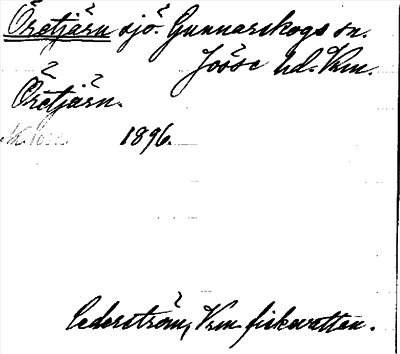 Öretjärn sjö. Gunnarskogs sn.
Jösse hd. Vrm.
Öretjärn.
1896.
Cederström, Vrm. fiskevatten.